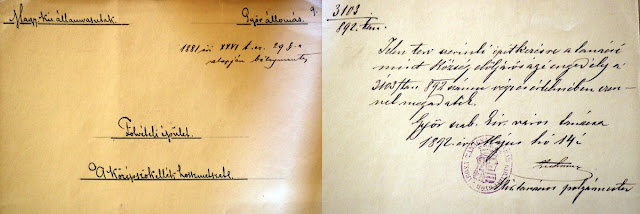 Magy. kir. államvasutak.
Győr állomás.
1881 évi XXVI t.cz. 29 §-a
alapján bélyegmentes
Felvételi épület.
A Középszökellék hosszmetszete.
3103
892. tan.
Jelen terv szerinti építkezésre a tanács
mint Község előljárósági engedély a
3103/tan 892 számu végzés értelmében ezen-
nel megadatik.
Győr szab. kir. város tanácsa
1892 évi Május hó 14én
polgármester